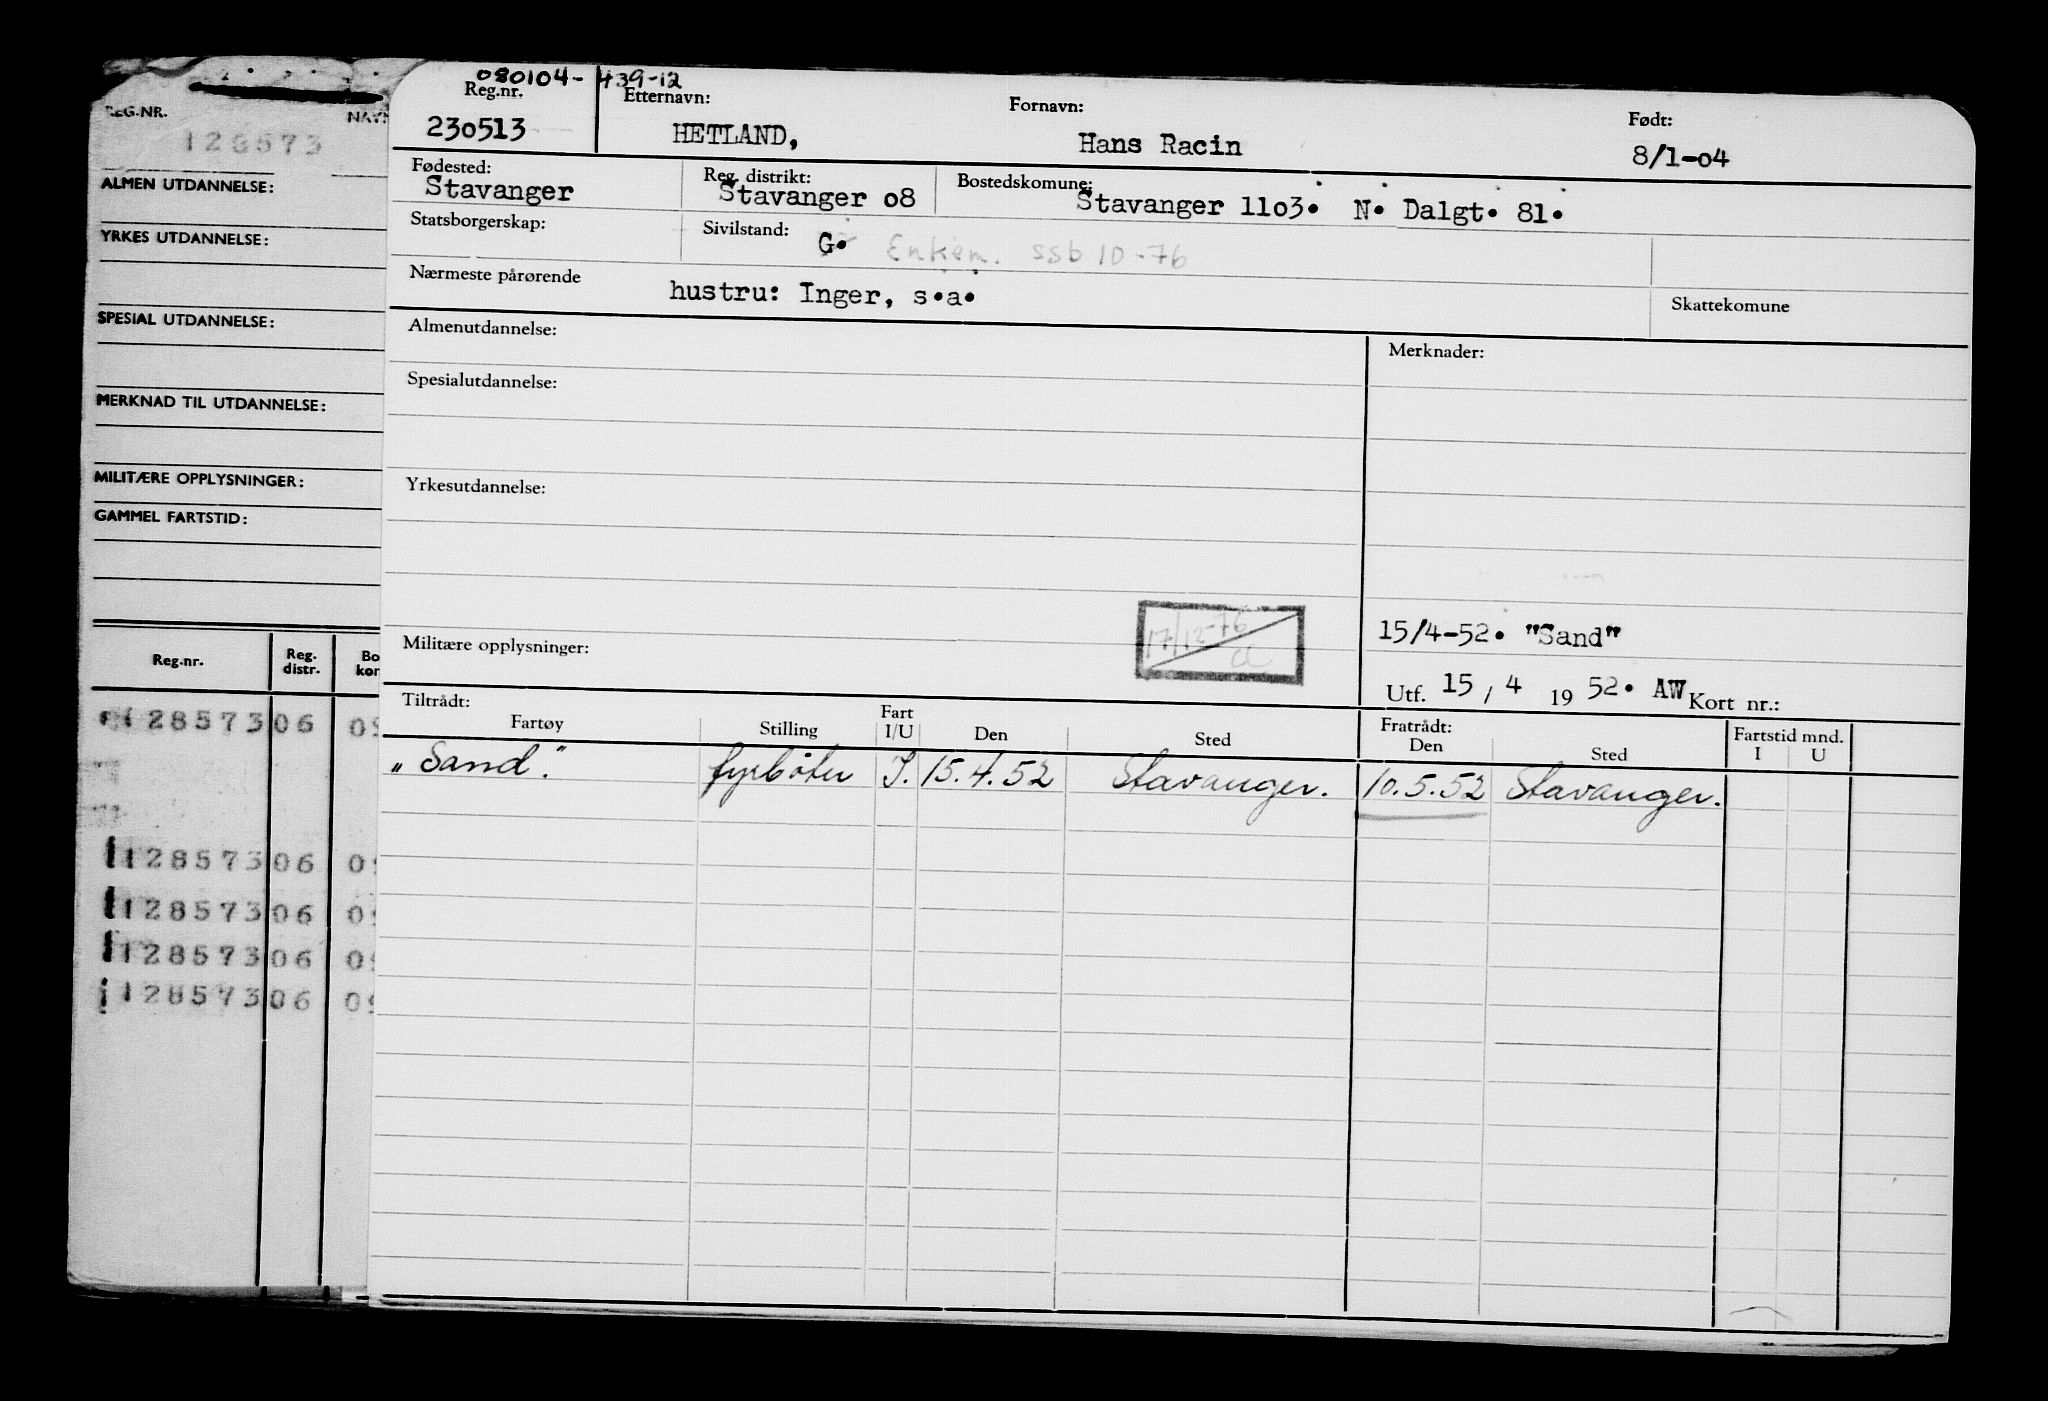 080104-439-12
Reg.nr. Etternavn: Fornavn: Født:
230513 HETLAND, Hans Racin 8/1-04
Fødested: Reg. distrikt: Bostedskomune:
Stavanger Stavanger o8 Stavanger 11o3. N. Dalgt. 81.
Statsborgerskap: Sivilstand: G. Enkem. ssb 10-76
Nærmeste pårørende hustru: Inger, s.a. Skattekomune
Almenutdannelse: Merknader:
Spesialutdannelse:
Yrkesutdannelse:
17/12-76
15/4-52. "Sand"
Militære opplysninger:
Utf. 15 / 4 19 52. AW Kort nr.:
Tiltrådt: Fratrådt: Fartstid mnd.
Fartøy Stilling Fart I/U Den Sted Den Sted I U
„Sand." fyrbøter I. 15.4.52 Stavanger. 10.5.52 Stavanger.
REG.NR. NAVN
128573
ALMEN UTDANNELSE:
YRKES UTDANNELSE:
SPESIAL UTDANNELSE:
MERKNAD TIL UTDANNELSE:
MILITÆRE OPPLYSNINGER:
GAMMEL FARTSTID:
Reg.nr. Reg. distr. Bo kor
128573 06 09
128573 06 09
128573 06 09
128573 06 09
128573 06 09